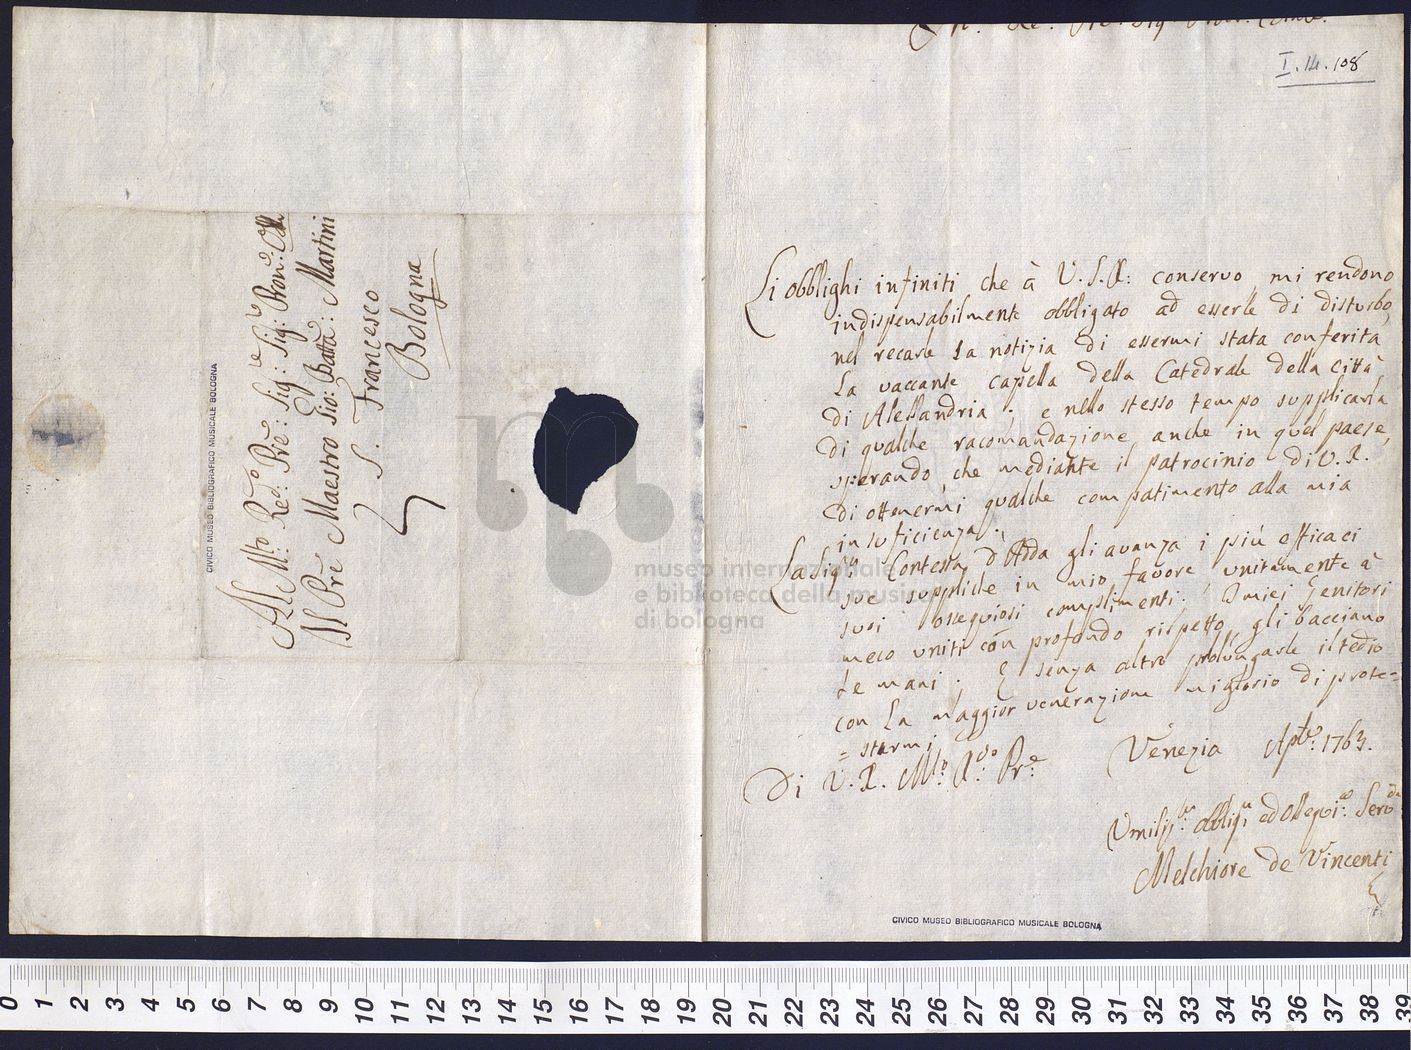 Al M.to Red.o Pre: Sig.re Sig.r Pron: Coll.
Il Pre Maestro Gio: Batta: Martini
S. Francesco
Bologna
CIVICO MUSEO BIBLIOGRAFICO MUSICALE BOLOGNA
I.14.108
Li obblighi infiniti che à V.S.R: conservo, mi rendono
indispensabilmente obbligato ad esserle di disturbo,
nel recarle la notizia di essermi stata conferita
la vaccante capella della Catedrale della città
di Alessandria; e nello stesso tempo supplicarla
di qualche racomandazione anche in quel paese,
sperando, che mediante il patrocinio di V.R.
di ottenermi qualche compatimento alla mia
insuficienza.
La Sig.ra Contessa d'Adda gli avanza i più efficaci
sue suppliche in mio favore unitamente à
suoi ossequiosi complimenti; I miei Genitori
meco uniti con profondo rispetto gli bacciano
le mani; E senza altro prolungarle il tedio
con la maggior venerazione mi glorio di prote=
=starmi
Di V.R. M.to R.do Pre
Venezia 1763.
Umiliss.o obblig.o ed Osseqi.o Serv.
Melchiore de Vincenti
CIVICO MUSEO BIBLIOGRAFICO MUSICALE BOLOGNA
museo internazionale
e biblioteca della musica
di bologna
0 1 2 3 4 5 6 7 8 9 10 11 12 13 14 15 16 17 18 19 20 21 22 23 24 25 26 27 28 29 30 31 32 33 34 35 36 37 38 39